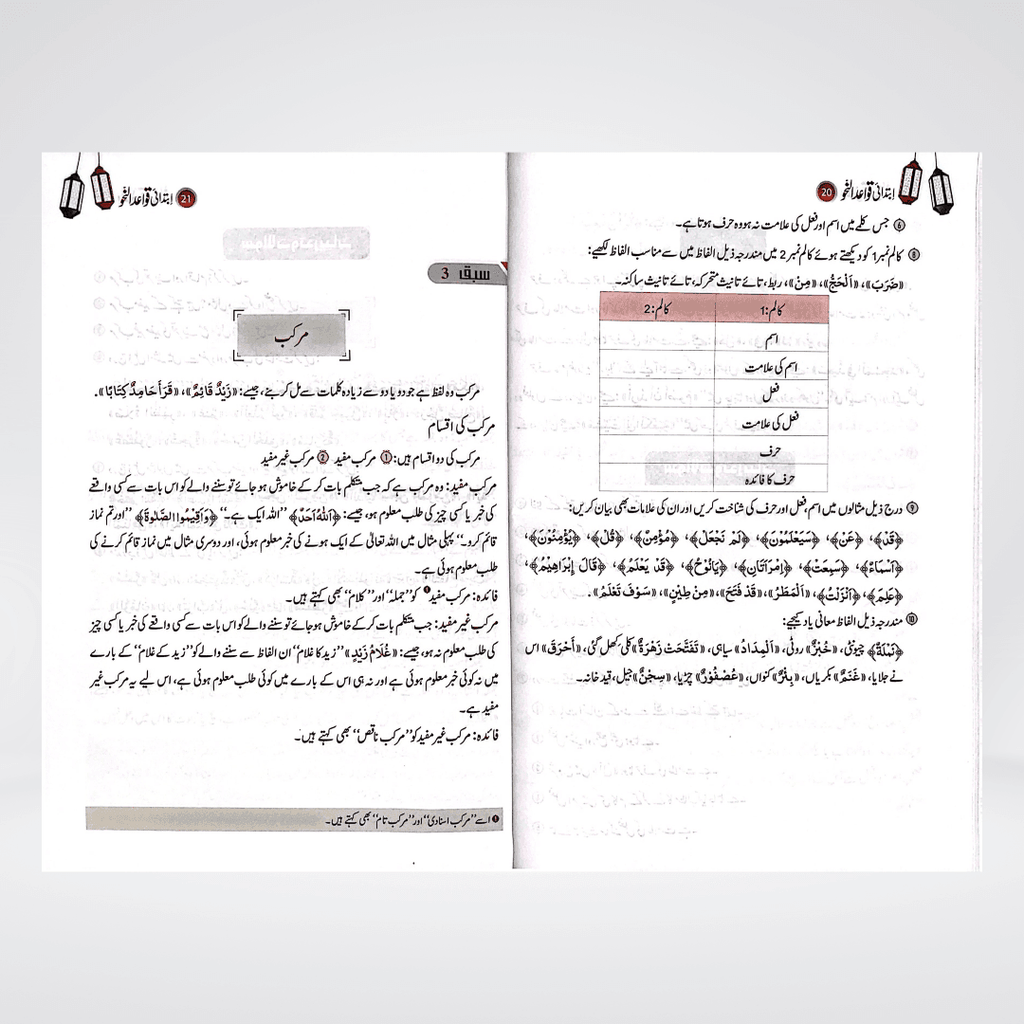 ابتدائی قواعد النحو 20
⑥ جس کلمے میں اسم اور فعل کی علامت نہ ہو وہ حرف ہوتا ہے۔
⑧ کالم نمبر 1 کو دیکھتے ہوئے کالم نمبر 2 میں مندرجہ ذیل الفاظ میں سے مناسب الفاظ لکھیے:
«ضَرَبَ»، «اَلْحَجُّ»، «مِنْ»، ربط، تائے تانیث متحرکہ، تائے تانیث ساکنہ۔
کالم:1 کالم:2
اسم
اسم کی علامت
فعل
فعل کی علامت
حرف
حرف کا فائدہ
⑨ درج ذیل مثالوں میں اسم، فعل اور حرف کی شناخت کریں اور ان کی علامات بھی بیان کریں:
﴿قَدْ﴾، ﴿عَنْ﴾، ﴿سَيَعْلَمُوْنَ﴾، ﴿لَمْ نَجْعَلْ﴾، ﴿مُؤْمِنٌ﴾، ﴿قُلْ﴾، ﴿يُؤْمِنُوْنَ﴾،
﴿اَسْمَاءٌ﴾، ﴿سَمِعَتْ﴾، ﴿اِمْرَاَتَانِ﴾، ﴿يَانُوْحُ﴾، ﴿قَدْ يَعْلَمُ﴾، ﴿قَالَ اِبْرَاهِيْمُ﴾،
﴿عَلِمَ﴾، ﴿اَنْزَلْتُ﴾، «اَلْمَطَرُ»، «قَدْ فَتَحَ»، «مِنْ طِيْنٍ»، «سَوْفَ تَعْلَمُ».
⑩ مندرجہ ذیل الفاظ معانی یاد کیجیے:
﴿نَمْلَةٌ﴾ چیونٹی، «خُبْزٌ» روٹی، «اَلْمِدَادُ» سیاہی، «تَفَتَّحَتْ زَهْرَةٌ» کلی کھل گئی، «اَحْرَقَ» اس
نے جلایا، «غَنَمٌ» بکریاں، «بِئْرٌ» کنواں، «عُصْفُوْرٌ» چڑیا، «سِجْنٌ» جیل، قید خانہ۔
ابتدائی قواعد النحو 21
سبق 3
مرکب
مرکب وہ لفظ ہے جو دو یا دو سے زیادہ کلمات سے مل کر بنے، جیسے: «زَيْدٌ قَائِمٌ»، «قَرَأَ حَامِدٌ كِتَابًا».
مرکب کی اقسام
مرکب کی دو اقسام ہیں: ① مرکب مفید ② مرکب غیر مفید
مرکب مفید: وہ مرکب ہے کہ جب متکلم بات کر کے خاموش ہو جائے تو سننے والے کو اس بات سے کسی واقعے
کی خبر یا کسی چیز کی طلب معلوم ہو، جیسے: ﴿اَللّٰهُ اَحَدٌ﴾ ’’اللہ ایک ہے۔‘‘ ﴿وَاَقِيْمُوا الصَّلٰوةَ﴾ ’’اور تم نماز
قائم کرو۔‘‘ پہلی مثال میں اللہ تعالیٰ کے ایک ہونے کی خبر معلوم ہوئی، اور دوسری مثال میں نماز قائم کرنے کی
طلب معلوم ہوئی ہے۔
فائدہ: مرکب مفید① کو ’’جملہ‘‘ اور ’’کلام‘‘ بھی کہتے ہیں۔
مرکب غیر مفید: جب متکلم بات کر کے خاموش ہو جائے تو سننے والے کو اس بات سے کسی واقعے کی خبر یا کسی چیز
کی طلب معلوم نہ ہو، جیسے: «غُلَامُ زَيْدٍ» ’’زید کا غلام‘‘ ان الفاظ سے سننے والے کو ’’زید کے غلام‘‘ کے بارے
میں نہ کوئی خبر معلوم ہوئی ہے اور نہ ہی اس کے بارے میں کوئی طلب معلوم ہوئی ہے، اس لیے یہ مرکب غیر
مفید ہے۔
فائدہ: مرکب غیر مفید کو ’’مرکب ناقص‘‘ بھی کہتے ہیں۔
① اسے ’’مرکب اسنادی‘‘ اور ’’مرکب تام‘‘ بھی کہتے ہیں۔